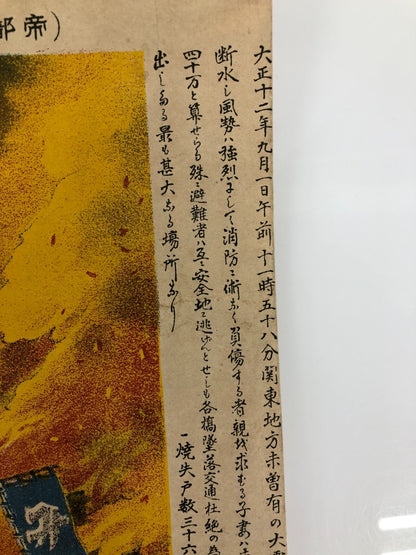 (帝都
大正十二年九月一日午前十一時五十八分関東地方未曽有の大
断水し風勢ハ強烈にして消防に術なく負傷する者親を求むる子妻ハ
四十万と算せらる殊に避難者ハ互に安全地に逃げんとせしも各橋墜落交通杜絶の為
出しる最も甚大なる場所なり
一焼失戸数三十六